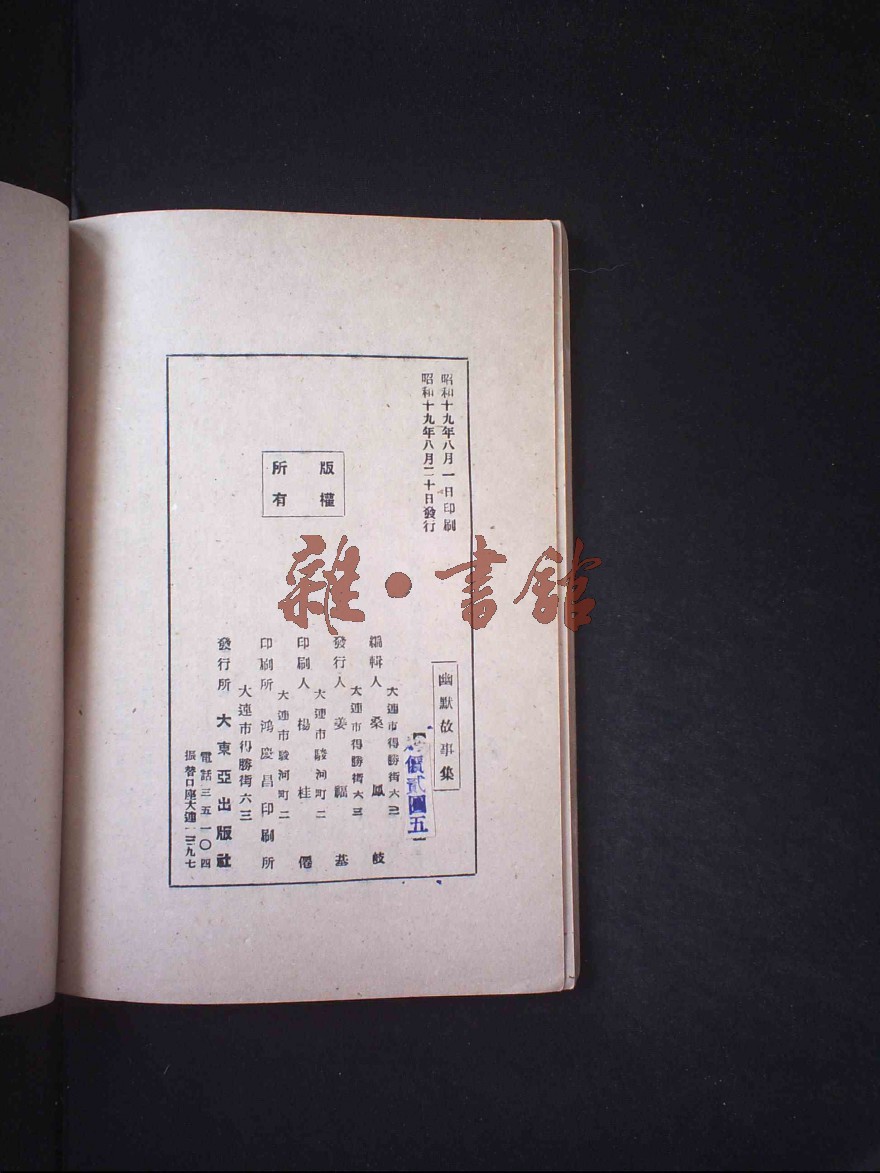 昭和十九年八月一日印刷
昭和十九年八月二十日發行
版權
所有
幽默故事集
價貳圓五
大連市得勝街六三
編輯人 桑鳳岐
大連市得勝街六三
發行人 姜福基
大連市駿河町二
印刷人 楊桂僊
大連市駿河町二
印刷所 鴻慶昌印刷所
大連市得勝街六三
發行所 大東亞出版社
電話三五一〇四
振替口座大連一三九七
雜·書館